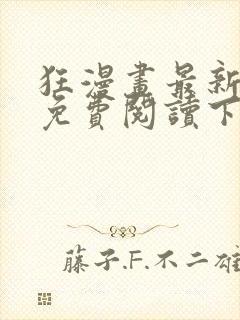 狂漫畫最新
免費閱讀下
藤子.F.不二雄